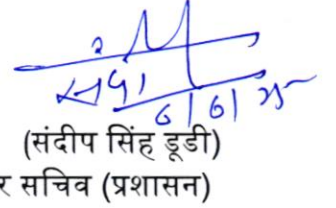 6/6/25
(संदीप सिंह डूडी)
र सचिव (प्रशासन)